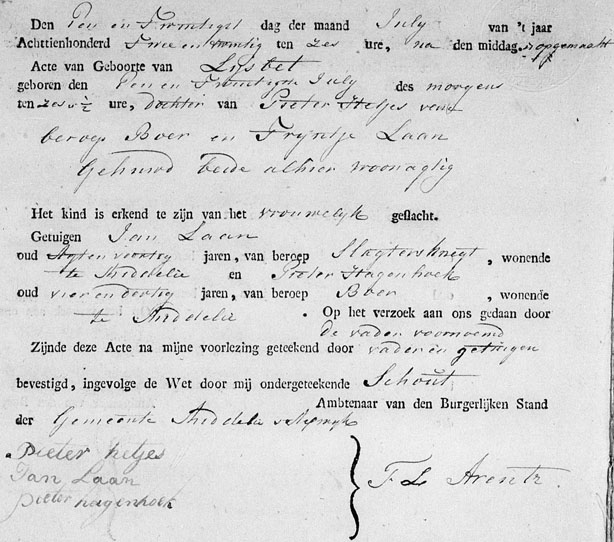 Den Een en Twintigst dag der maand July van 't jaar
Achttienhonderd Twee en twintig ten zes ure, na den middag, is opgemaakt
Acte van Geboorte van Lijsbet
geboren den Een en Twintigste July des morgens
ten zes ½ ure, dochter van Pieter Hetjes van
beroep Boer en Tryntje Laan
Gehuwd beide alhier woonagtig
Het kind is erkend te zijn van het vrouwelyk geslacht.
Getuigen Jan Laan
oud jaren, van beroep Slagtersknegt, wonende
te Middelie en Pieter Hagenhoek
oud vier en dertig jaren, van beroep Boer, wonende
te Middelie. Op het verzoek aan ons gedaan door
de vader voornoemd
Zijnde deze Acte na mijne voorlezing geteekend door vader en getuigen
bevestigd, ingevolge de Wet door mij ondergeteekende Schout
Ambtenaar van den Burgerlijken Stand
der Gemeente Middelie
Pieter hetjes
Jan Laan
pieter hagenhoek
F L Arentz.